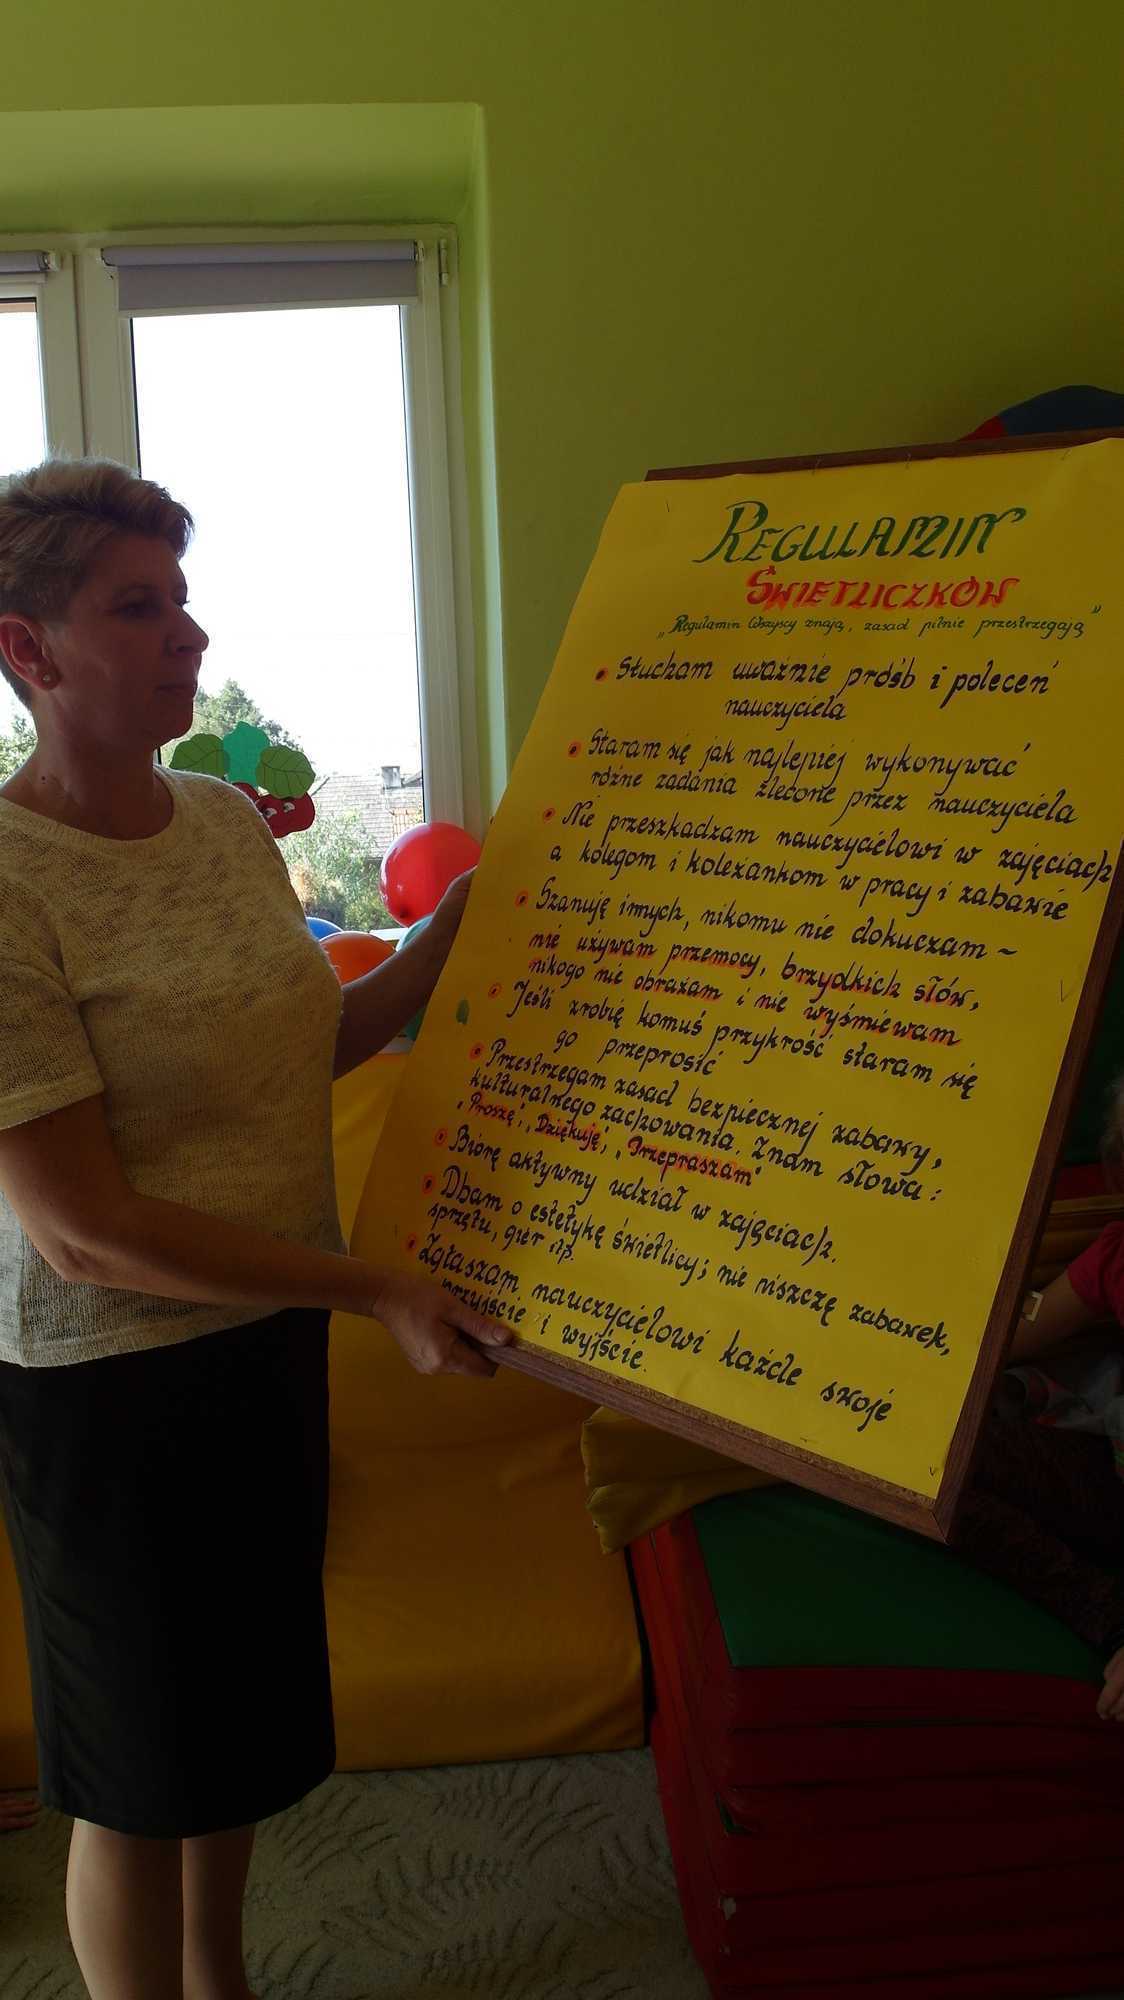 REGULAMIN
ŚWIETLICZKÓW
„Regulamin Wszyscy znają, zasad pilnie przestrzegają"
• Słucham uważnie próśb i poleceń
nauczyciela
• Staram się jak najlepiej wykonywać
różne zadania zlecone przez nauczyciela
• Nie przeszkadzam nauczycielowi w zajęciach
a kolegom i koleżankom w pracy i zabawie
• Szanuję innych, nikomu nie dokuczam –
nie używam przemocy, brzydkich słów,
nikogo nie obrażam i nie wyśmiewam
• Jeśli zrobię komuś przykrość staram się
go przeprosić
• Przestrzegam zasad bezpiecznej zabawy,
kulturalnego zachowania. Znam słowa:
„Proszę", „Dziękuję", „Przepraszam"
• Biorę aktywny udział w zajęciach.
• Dbam o estetykę świetlicy; nie niszczę zabawek,
sprzętu, gier itp.
• Zgłaszam nauczycielowi każde swoje
przyjście i wyjście.